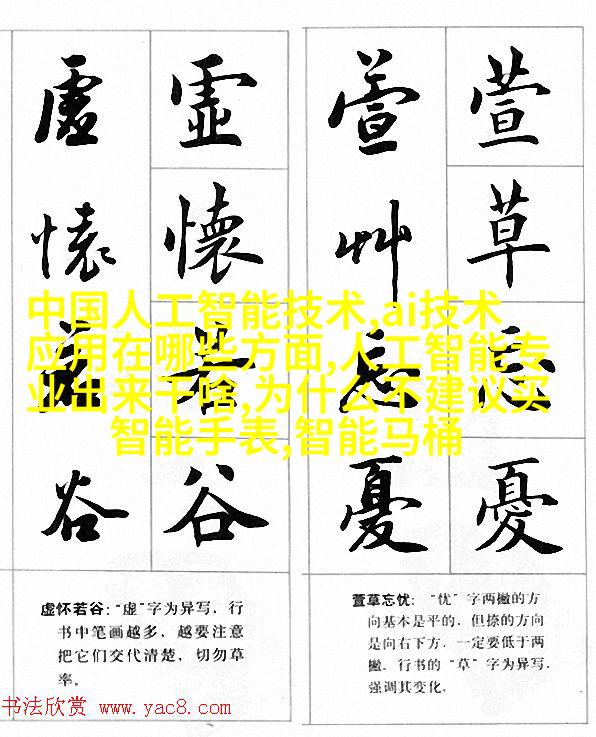 虚懷若谷
虛懷若谷
萱艸忘憂
萱草忘憂
中国人工智能技术,ai技术
应用在哪些方面,人工智能专
业出来干啥,为什么不建议买
智能手表,智能马桶
虚怀若谷:“虚”字为异写，行
书中笔画越多，越要注意
把它们交代清楚，切勿草
率。
萱草忘忧:“忧”字两撇的方
向基本是平的，但捺的方向
是向右下方，一定要低于两
撇。行书的“草”字为异写，
强调其变化。
书法欣赏 www.yac8.com